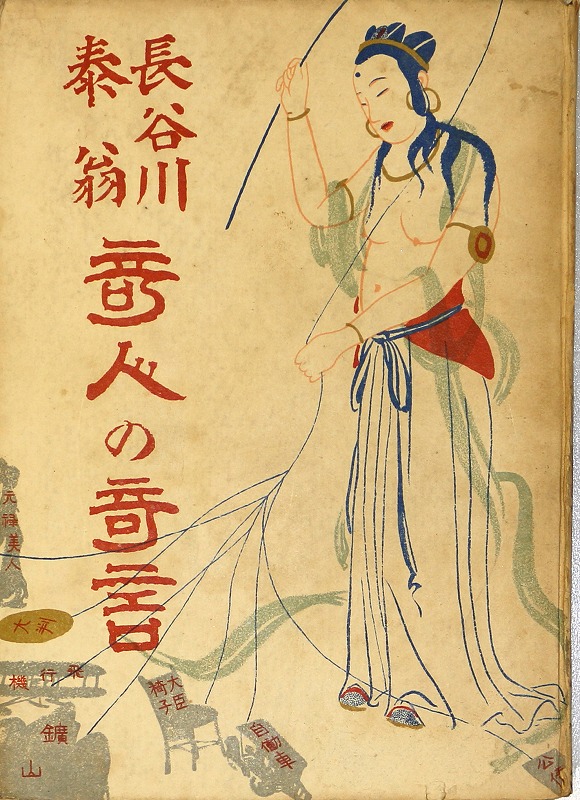 長谷川
泰翁
竒人の竒言
元禄美人
飛行機
鑛山
大臣
椅子
自働車